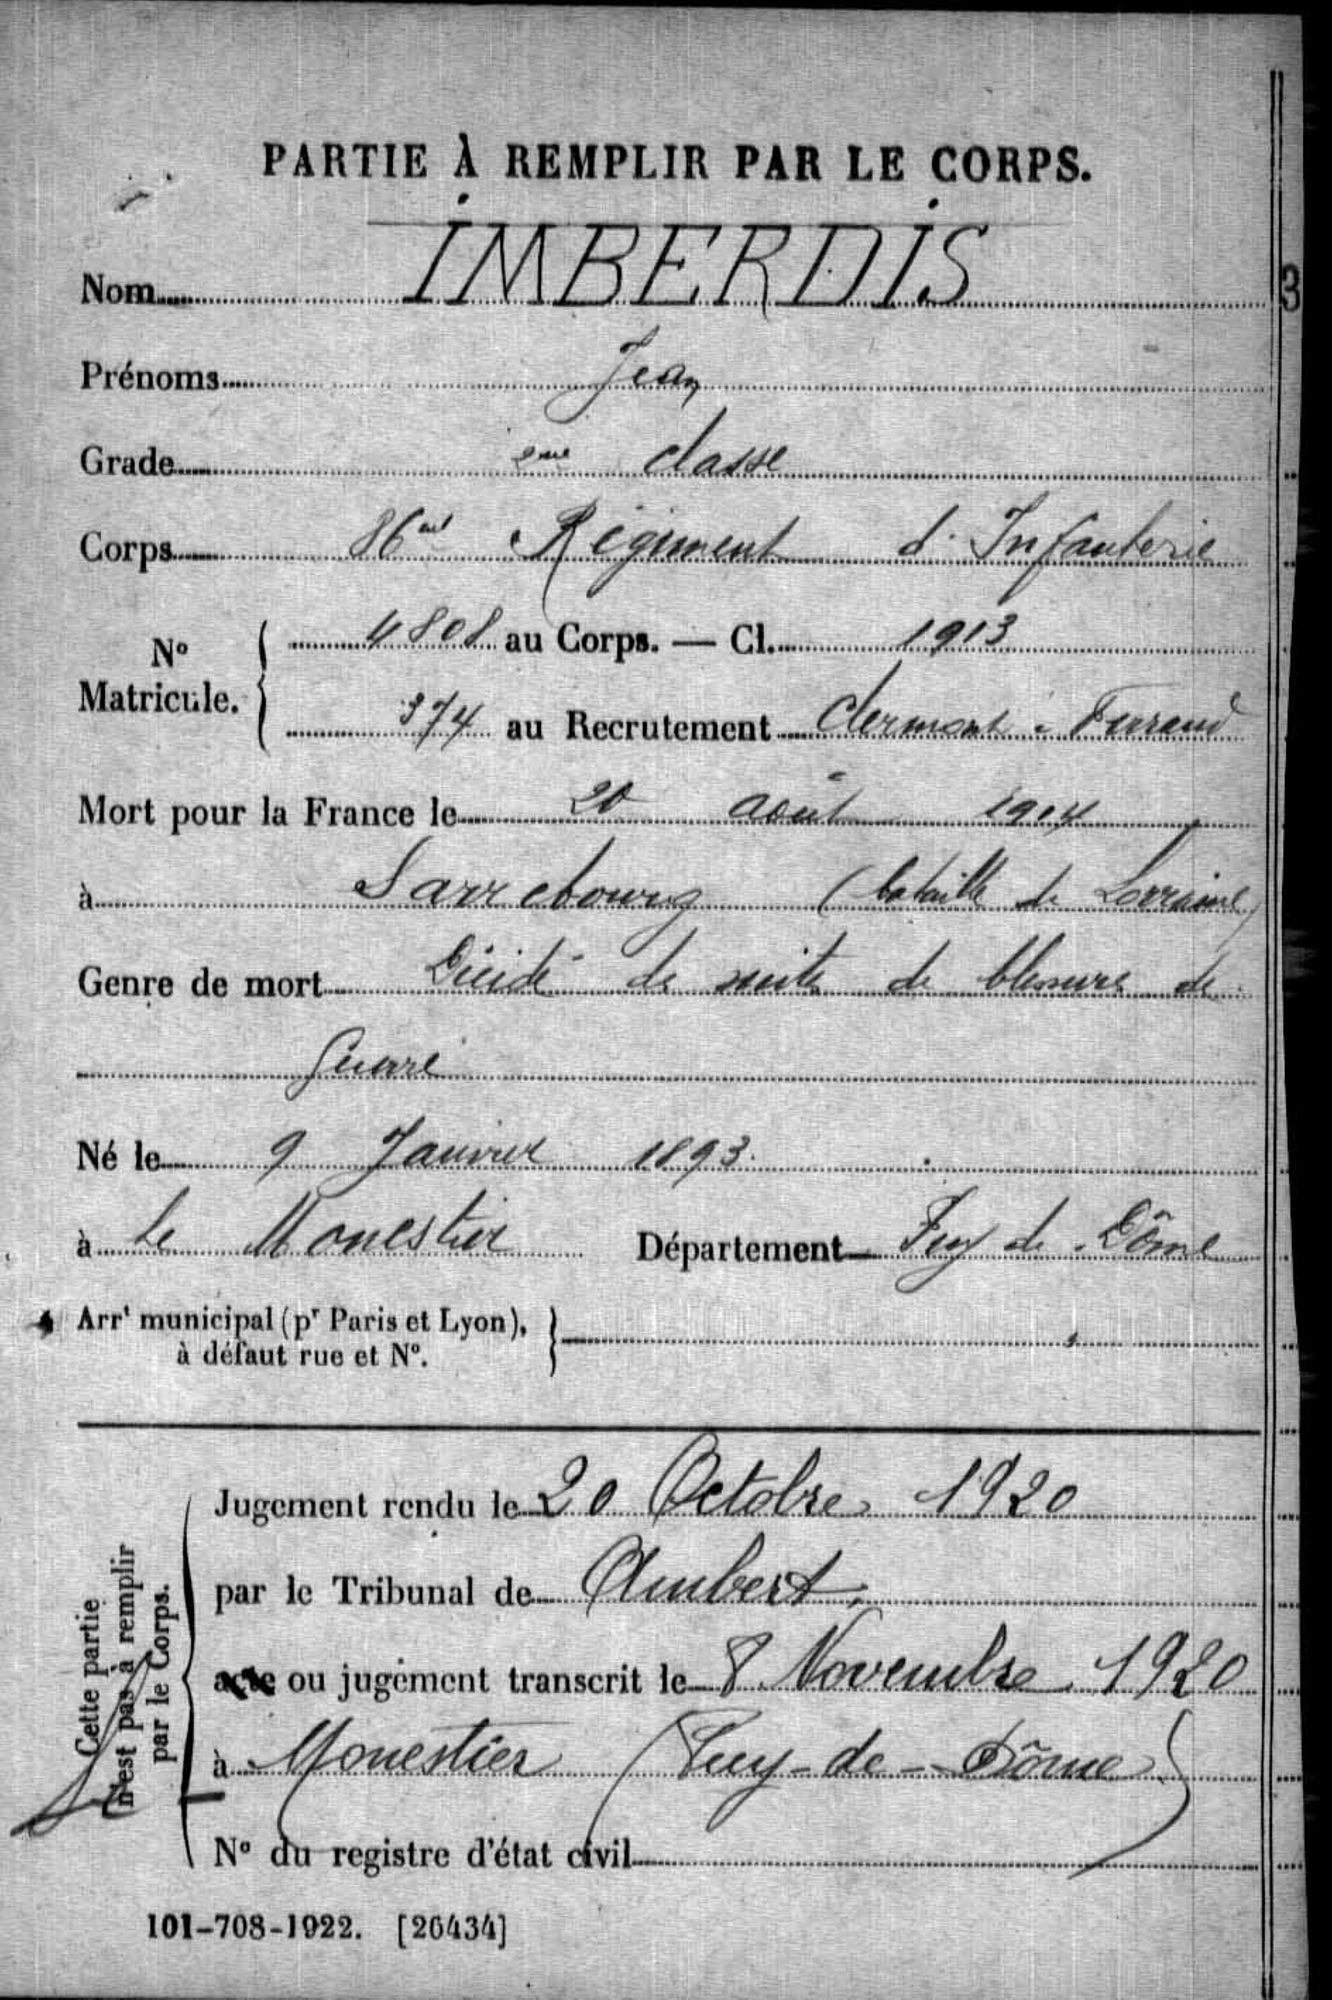 PARTIE À REMPLIR PAR LE CORPS.
Nom IMBERDIS
Prénoms Jean
Grade 2me classe
Corps 86me Régiment d'Infanterie
No Matricule. 4808 au Corps. — Cl. 1913
374 au Recrutement Clermont-Ferrand
Mort pour la France le 20 août 1914
à Sarrebourg (bataille de Lorraine)
Genre de mort Décédé de suite de blessure de
Guerre
Né le 9 Janvier 1893.
à Le Monestier Département Puy de Dôme
Arrt municipal (pr Paris et Lyon),
à défaut rue et No.
Cette partie
n'est pas à remplir
par le Corps.
Jugement rendu le 20 Octobre 1920
par le Tribunal de Ambert
acte ou jugement transcrit le 8 Novembre 1920
à Monestier (Puy-de-Dôme)
No du registre d'état civil
101-708-1922. [26434]
3